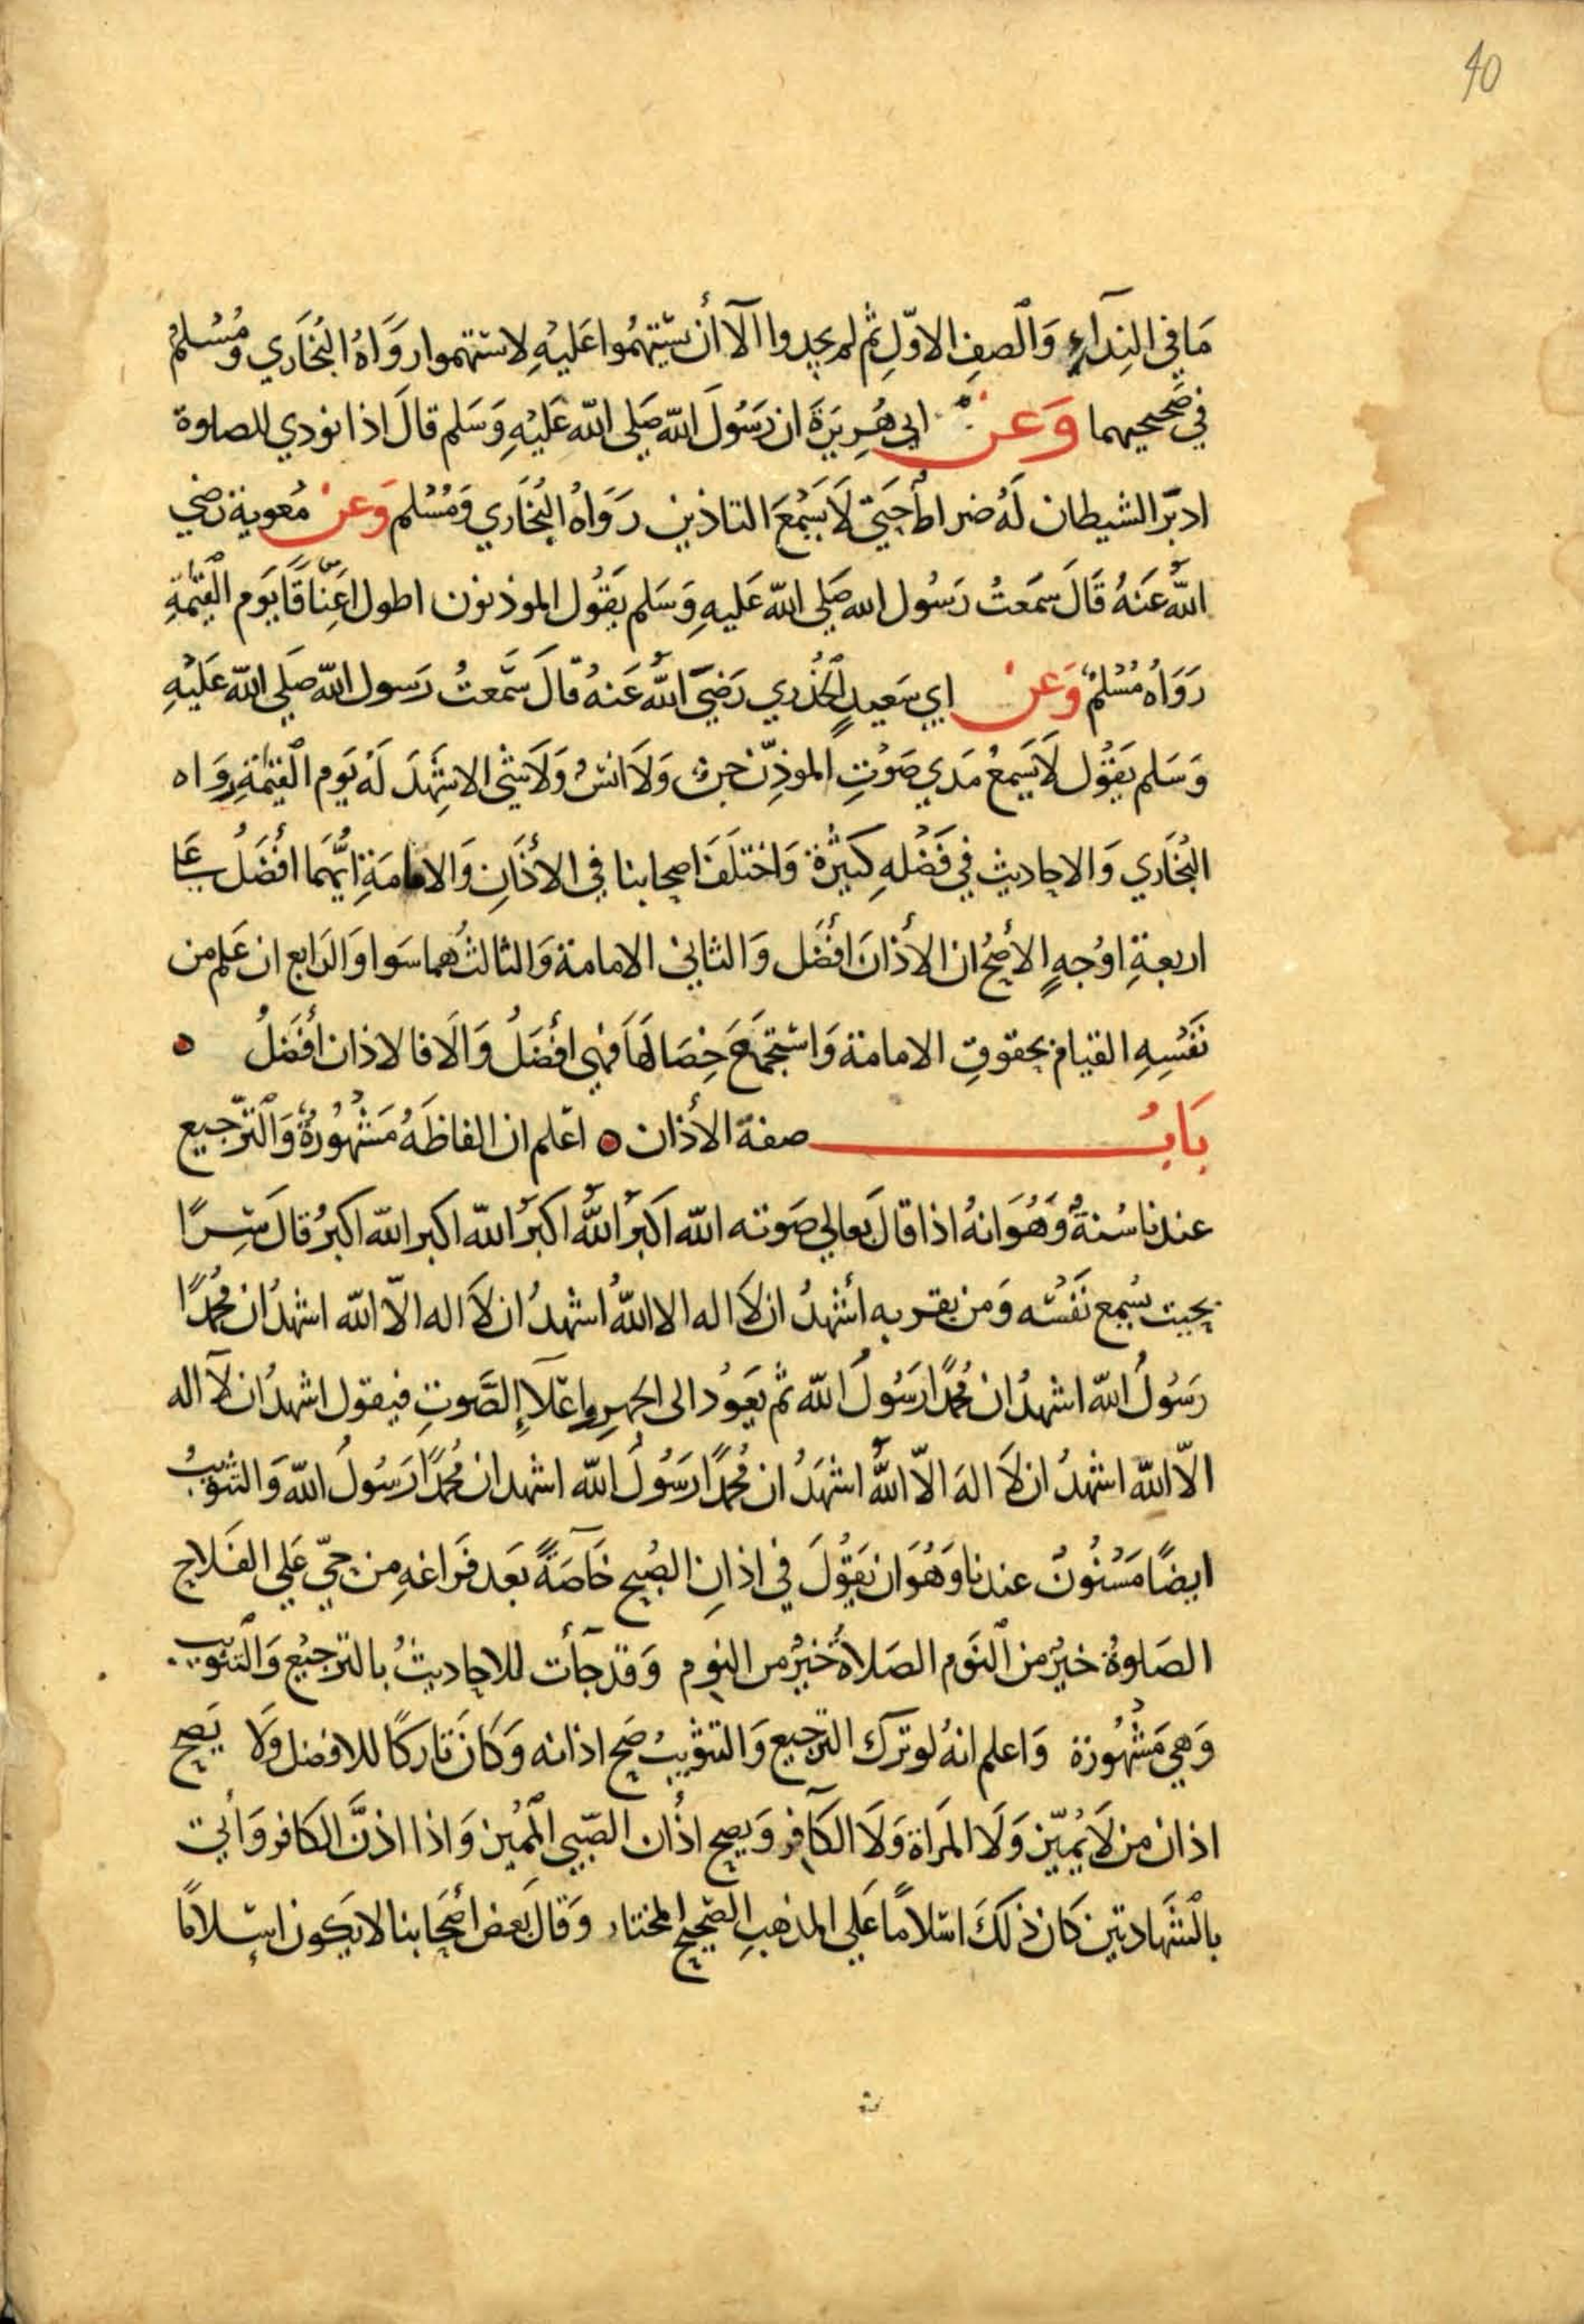 40
مَا في النِدَآءِ وَالصفِ الاوّلِ ثم لم يجدوا الآ أن يستهمُوا عَليْهِ لاستهموا رَوَاهُ البُخَاري ومُسْلمٌ
في صَحيحيهما وَعن ابي هُرِيرَةَ ان رَسُولَ الله صَلى الله عَليْهِ وَسَلم قالَ اذا نودي للصلوة
ادبَر الشيطان لَهُ ضراط حَتي لَا يَسْمَعَ التاذين رَوَاهُ البُخَاري وَمُسْلم وَعن مُعوية رَضي
اللهُ عَنهُ قَالَ سَمعتُ رَسُول الله صَلى الله عَليهِ وَسَلم يقُول الموذنون اطول اعنَاقًا يَوم القيٰمةِ
رَوَاهُ مُسْلمٌ وَعن ابي سَعيدٍ الخُدري رَضيَ اللهُ عَنهُ قالَ سَمعتُ رَسول الله صَلى الله عَليْهِ
وَسَلم يقُول لَا يَسَمعُ مَدي صَوْتِ الموذِّن جن وَلَا انسٌ وَلَا شي الا شهدَ لَهُ يَوم القيٰمةِ رواه
البُخَاري وَالاحاديث في فَضْلهِ كَثيْرة وَاختلَفَ اصحابنا في الأذَانِ وَالامامَةِ ايّهمَا أفْضَلُ عَلي
اربعةِ اوْجهٍ الأصَحُ ان الأذَانَ افْضَل وَالثاني الامامة وَالثالثُ هما سَوا وَالرَابع ان عَلم من
نَفْسهِ القيام بحقوقِ الامامة وَاسْتجمَعَ خِصَالهَا فهي أفْضَلُ وَالّا فالاذان أفْضَلُ ه
بَابُ صفة الأذان ه اعْلم ان الفاظَهُ مَشْهُورةٌ وَالتَرجيع
عندنا سُنةٌ وَهُوَ انهُ اذا قالَ بعالي صَوته الله اَكبرُ اللهُ اكبَرُ الله اكبر الله اكبرُ قال سِرًّا
بحيث يُسْمع نَفْسَه وَمن بقربه أشهدُ ان لَا اله الا اللهُ اشهدُ ان لَا اله الّا الله اشهدُ ان مُحمدًا
رَسُولُ الله اشهدُ ان مُحمدًا رَسُولُ الله ثم يَعَوُد الى الجهرِ واعْلَاءِ الصَّوتِ فيقول اشهدُ ان لآ اله
الّا الله اشهدُ ان لَا الهَ الّا اللهُ اشهَدُ ان مُحمدًا رَسُولُ الله اشهد ان مُحمدًا رَسُولُ الله وَالتثويبُ
ايضًا مَسْنُونٌ عندنا وَهُوَ ان يَقُولَ في اذانِ الصُبح خَاصَةً بَعد فَرَاغهِ من حيّ عَلي الفَلاح
الصَلوةُ خيرٌ من النَوم الصَلاةُ خَيْرٌ من النوم وَقدْ جَأت للاحاديثُ بالترجيْع وَالتثويب
وَهي مَشْهُورة وَاعلم انهُ لو تركَ الترجيع وَالتثويبَ صَح اذانه وَكَان تَاركًا للافضل وَلَا يَصح
اذان من لَا يُمَيّز وَلَا المَراة وَلَا الكَافر وَيصح اذَان الصَبي المُميز وَاذا اذنَّ الكافر وَأتي
بالشَهادتين كَان ذلَكَ اسْلامًا عَلي المذهب الصَحيح المختار وَقالَ بَعض أصْحَابنا لا يكون اسْلامًا